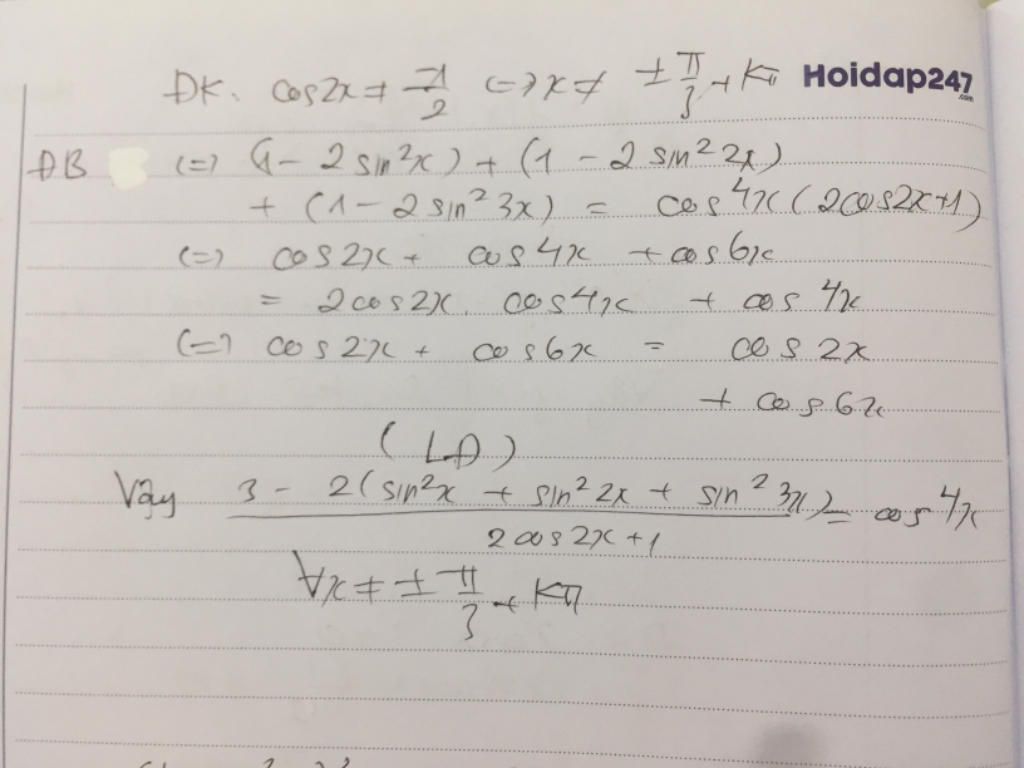 ĐK. cos2x ≠ -1/2 <=> x ≠ ±π/3 + Kπ Hoidap247.com
ĐB <=> (1 - 2 sin²x) + (1 - 2 sin² 2x)
+ (1 - 2 sin² 3x) = cos 4x (2cos2x+1)
<=> cos 2x + cos 4x + cos 6x
= 2cos2x. cos4x + cos 4x
<=> cos 2x + cos 6x = cos 2x
+ cos 6x
(LĐ)
Vậy (3 - 2(sin²x + sin² 2x + sin² 3x))/(2cos2x+1) = cos 4x
∀x ≠ ±π/3 + Kπ